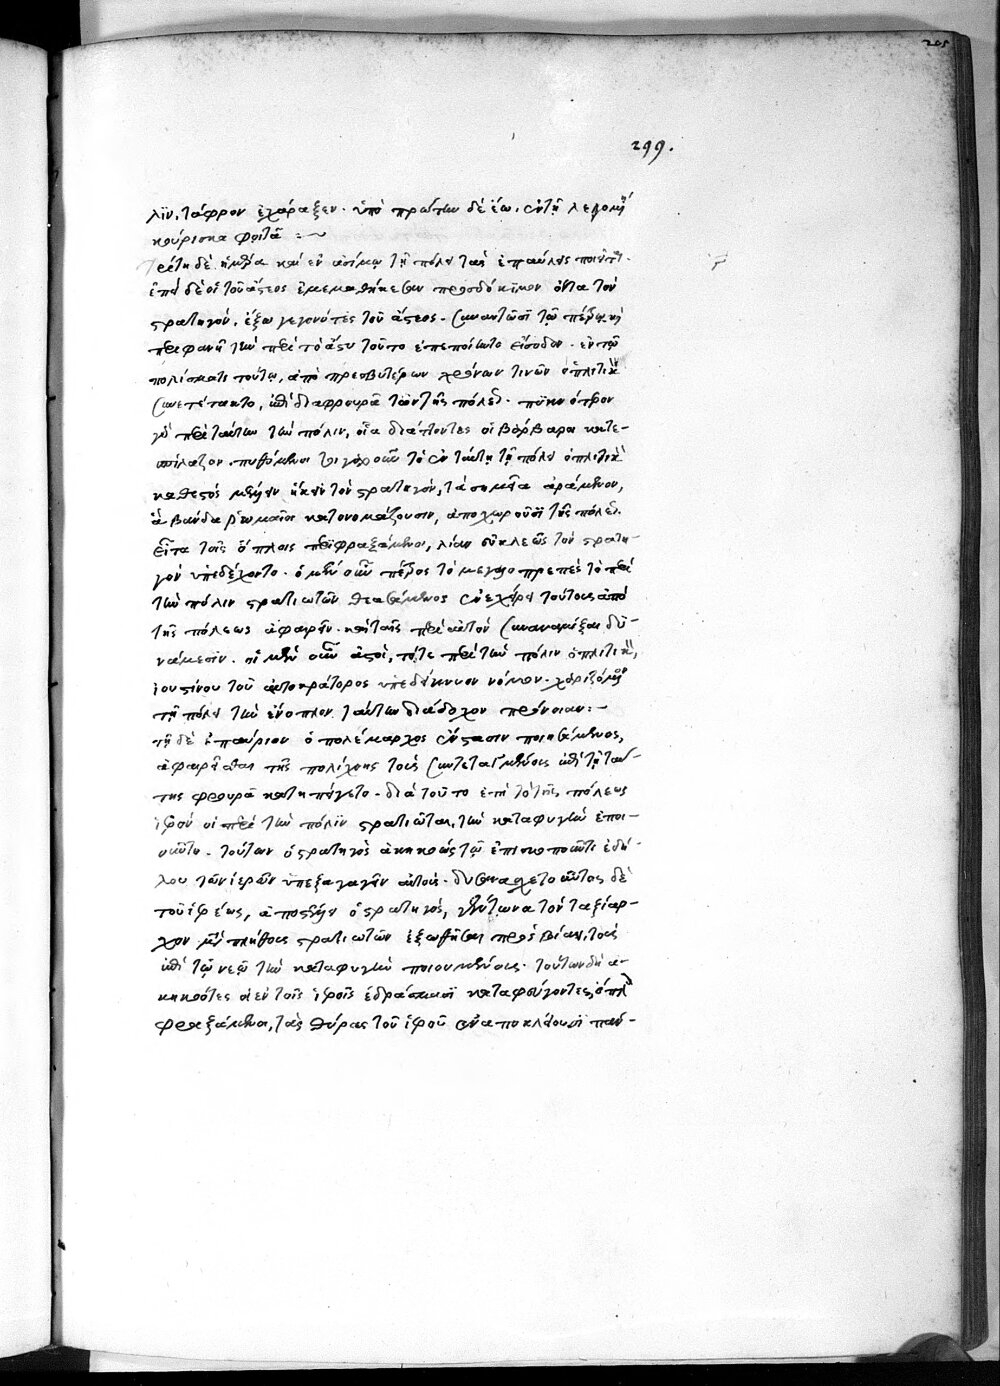 205
299.
λιν, τάφρον ἐχάραξεν. ὑπὸ πρώτην δὲ ἕω, ἐν τῇ λεγομένῃ
κουρίσκα φοιτᾷ :~
τρίτη δὲ ἡμέρα καὶ ἐν ἀσίμῳ τῇ πόλει τὰς ἐπαύλεις ποιεῖται.
ἐπεὶ δὲ οἱ τοῦ ἄστεος ἐμεμαθήκεσαν προσδόκιμον ὄντα τὸν
στρατηγόν, ἔξω γεγονότες τοῦ ἄστεος. συναντῶσι τῷ πέτρῳ καὶ
περιφανῆ τὴν περὶ τὸ ἄστυ τοῦτο ἐπεποίηντο εἴσοδον. ἐν τῷ
πολίσματι τούτῳ, ἀπὸ πρεσβυτέρων χρόνων τινῶν ὁπλιτικὸν
συνετέτακτο, ἐπὶ διαφρουρᾷ τῶν τῆς πόλεως. πυκνότερον
γὰρ περὶ ταύτην τὴν πόλιν, οἷα διάττοντες οἱ βάρβαροι κατε-
πύλαζον. πυθόμενοι τιγαροῦν τὸ ἐν ταύτῃ τῇ πόλει ὁπλιτικὸν
καθεστὸς μένειν ἥκειν τὸν στρατηγόν, τὰ σημεῖα ἀράμενον,
ἃ βάνδα ῥωμαῖοι κατονομάζουσιν, ἀποχωροῦσι τῆς πόλεως.
εἶτα τοῖς ὅπλοις περιφραξάμενοι, λίαν εὐκλεῶς τὸν στρατη-
γὸν ὑπεδέχοντο. ὁ μὲν οὖν πέτρος τὸ μεγαλοπρεπὲς τὸ περὶ
τὴν πόλιν στρατιωτῶν θεασάμενος ἐνεχείρει τούτους ἀπὸ
τῆς πόλεως ἀφαιρεῖν. καὶ ταῖς περὶ αὐτὸν συναναμίξαι δυ-
νάμεσιν. οἱ μὲν οὖν ἀστοὶ, τότε περὶ τὴν πόλιν ὁπλιτικὸν,
ἰουστίνου τοῦ αὐτοκράτορος ὑπεδείκνυον νόμον. χαριζόμενον
τῇ πόλει τὴν ἔνοπλον ταύτην διάδοχον πρόνοιαν :-
τῇ δὲ ἐπαύριον ὁ πολέμαρχος ἔνστασιν ποιησάμενος,
ἀφαιρεῖσθαι τῆς πολίχνης τοὺς συντεταγμένους ἐπὶ τῇ ταύ-
της φρουρᾷ κατηπείγετο. διὰ τοῦτο ἐπὶ τὸ τῆς πόλεως
ἱερὸν οἱ περὶ τὴν πόλιν στρατιῶται, τὴν καταφυγὴν ἐποι-
οῦντο. τούτων ὁ στρατηγὸς ἀκηκοὼς τῷ ἐπισκοποῦντι ἐδή-
λου τῶν ἱερῶν ὑπεξαγαγεῖν αὐτούς. δυσανασχετοῦντος δὲ
τοῦ ἱερέως, ἀποστέλλειν ὁ στρατηγὸς, γέντζωνα τὸν ταξίαρ-
χον μετὰ πλήθους στρατιωτῶν ἐξωθῆσαι πρὸς βίαν, τοὺς
ἐπὶ τῷ νεῷ τὴν καταφυγὴν ποιουμένους. τούτων δὴ ἀ-
κηκοότες οἱ ἐν τοῖς ἱεροῖς ἐδράσασι καταφεύγοντες, ὅπλοις
φραξάμενοι, τὰς θύρας τοῦ ἱεροῦ ἐναποκλείουσι παν-